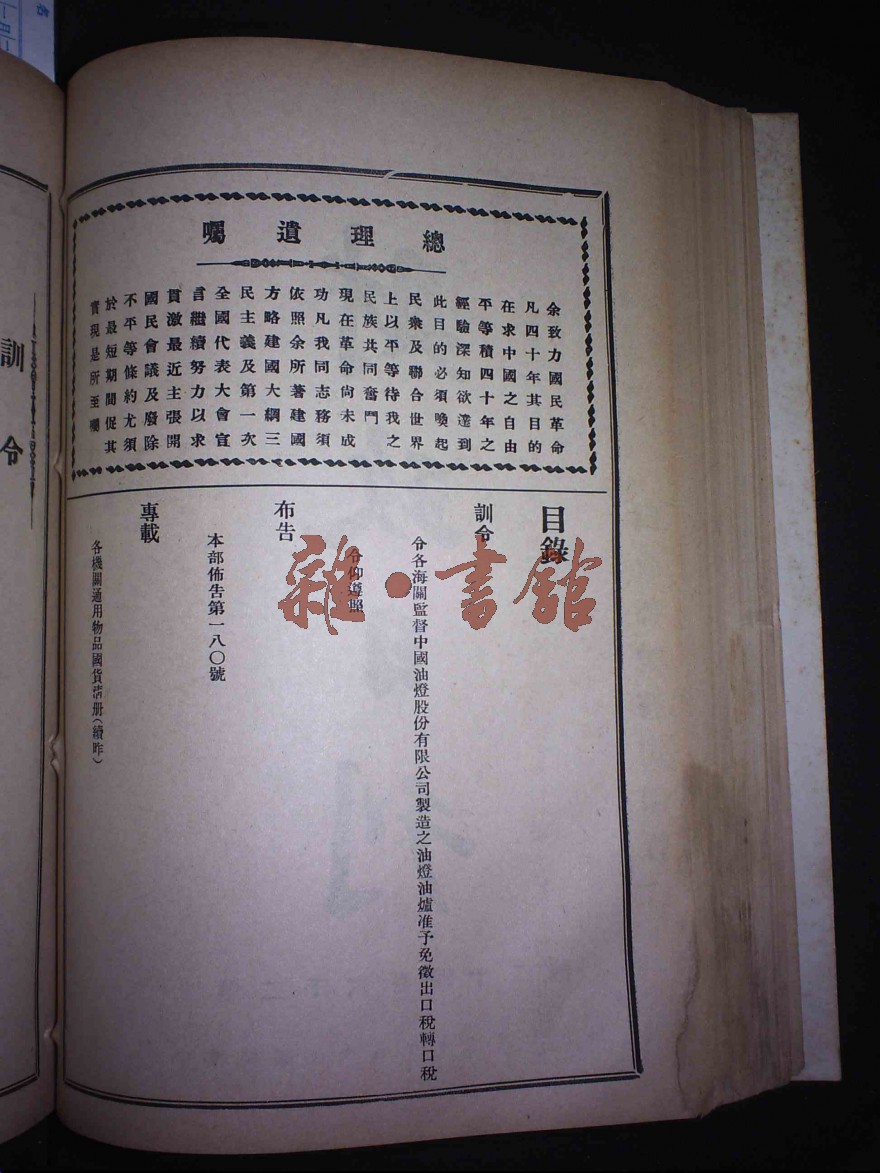 總理遺囑
余致力國民革命
凡四十年其目的
在求中國之自由
平等積四十年之
經驗深知欲達到
此目的必須喚起
民衆及聯合世界
上以平等待我之
民族共同奮鬥
現在革命尙未成
功凡我同志務須
依照余所著建國
方略建國大綱三
民主義及第一次
全國代表大會宣
言繼續努力以求
貫澈最近主張開
國民會議及廢除
不平等條約尤須
於最短期間促其
實現是所至囑
目錄
訓令
令各海關監督中國油燈股份有限公司製造之油燈油爐准予免徵出口稅轉口稅
令仰遵照
布告
本部佈告第一八〇號
專載
各機關通用物品國貨清册(續昨)
訓令
雜·書館